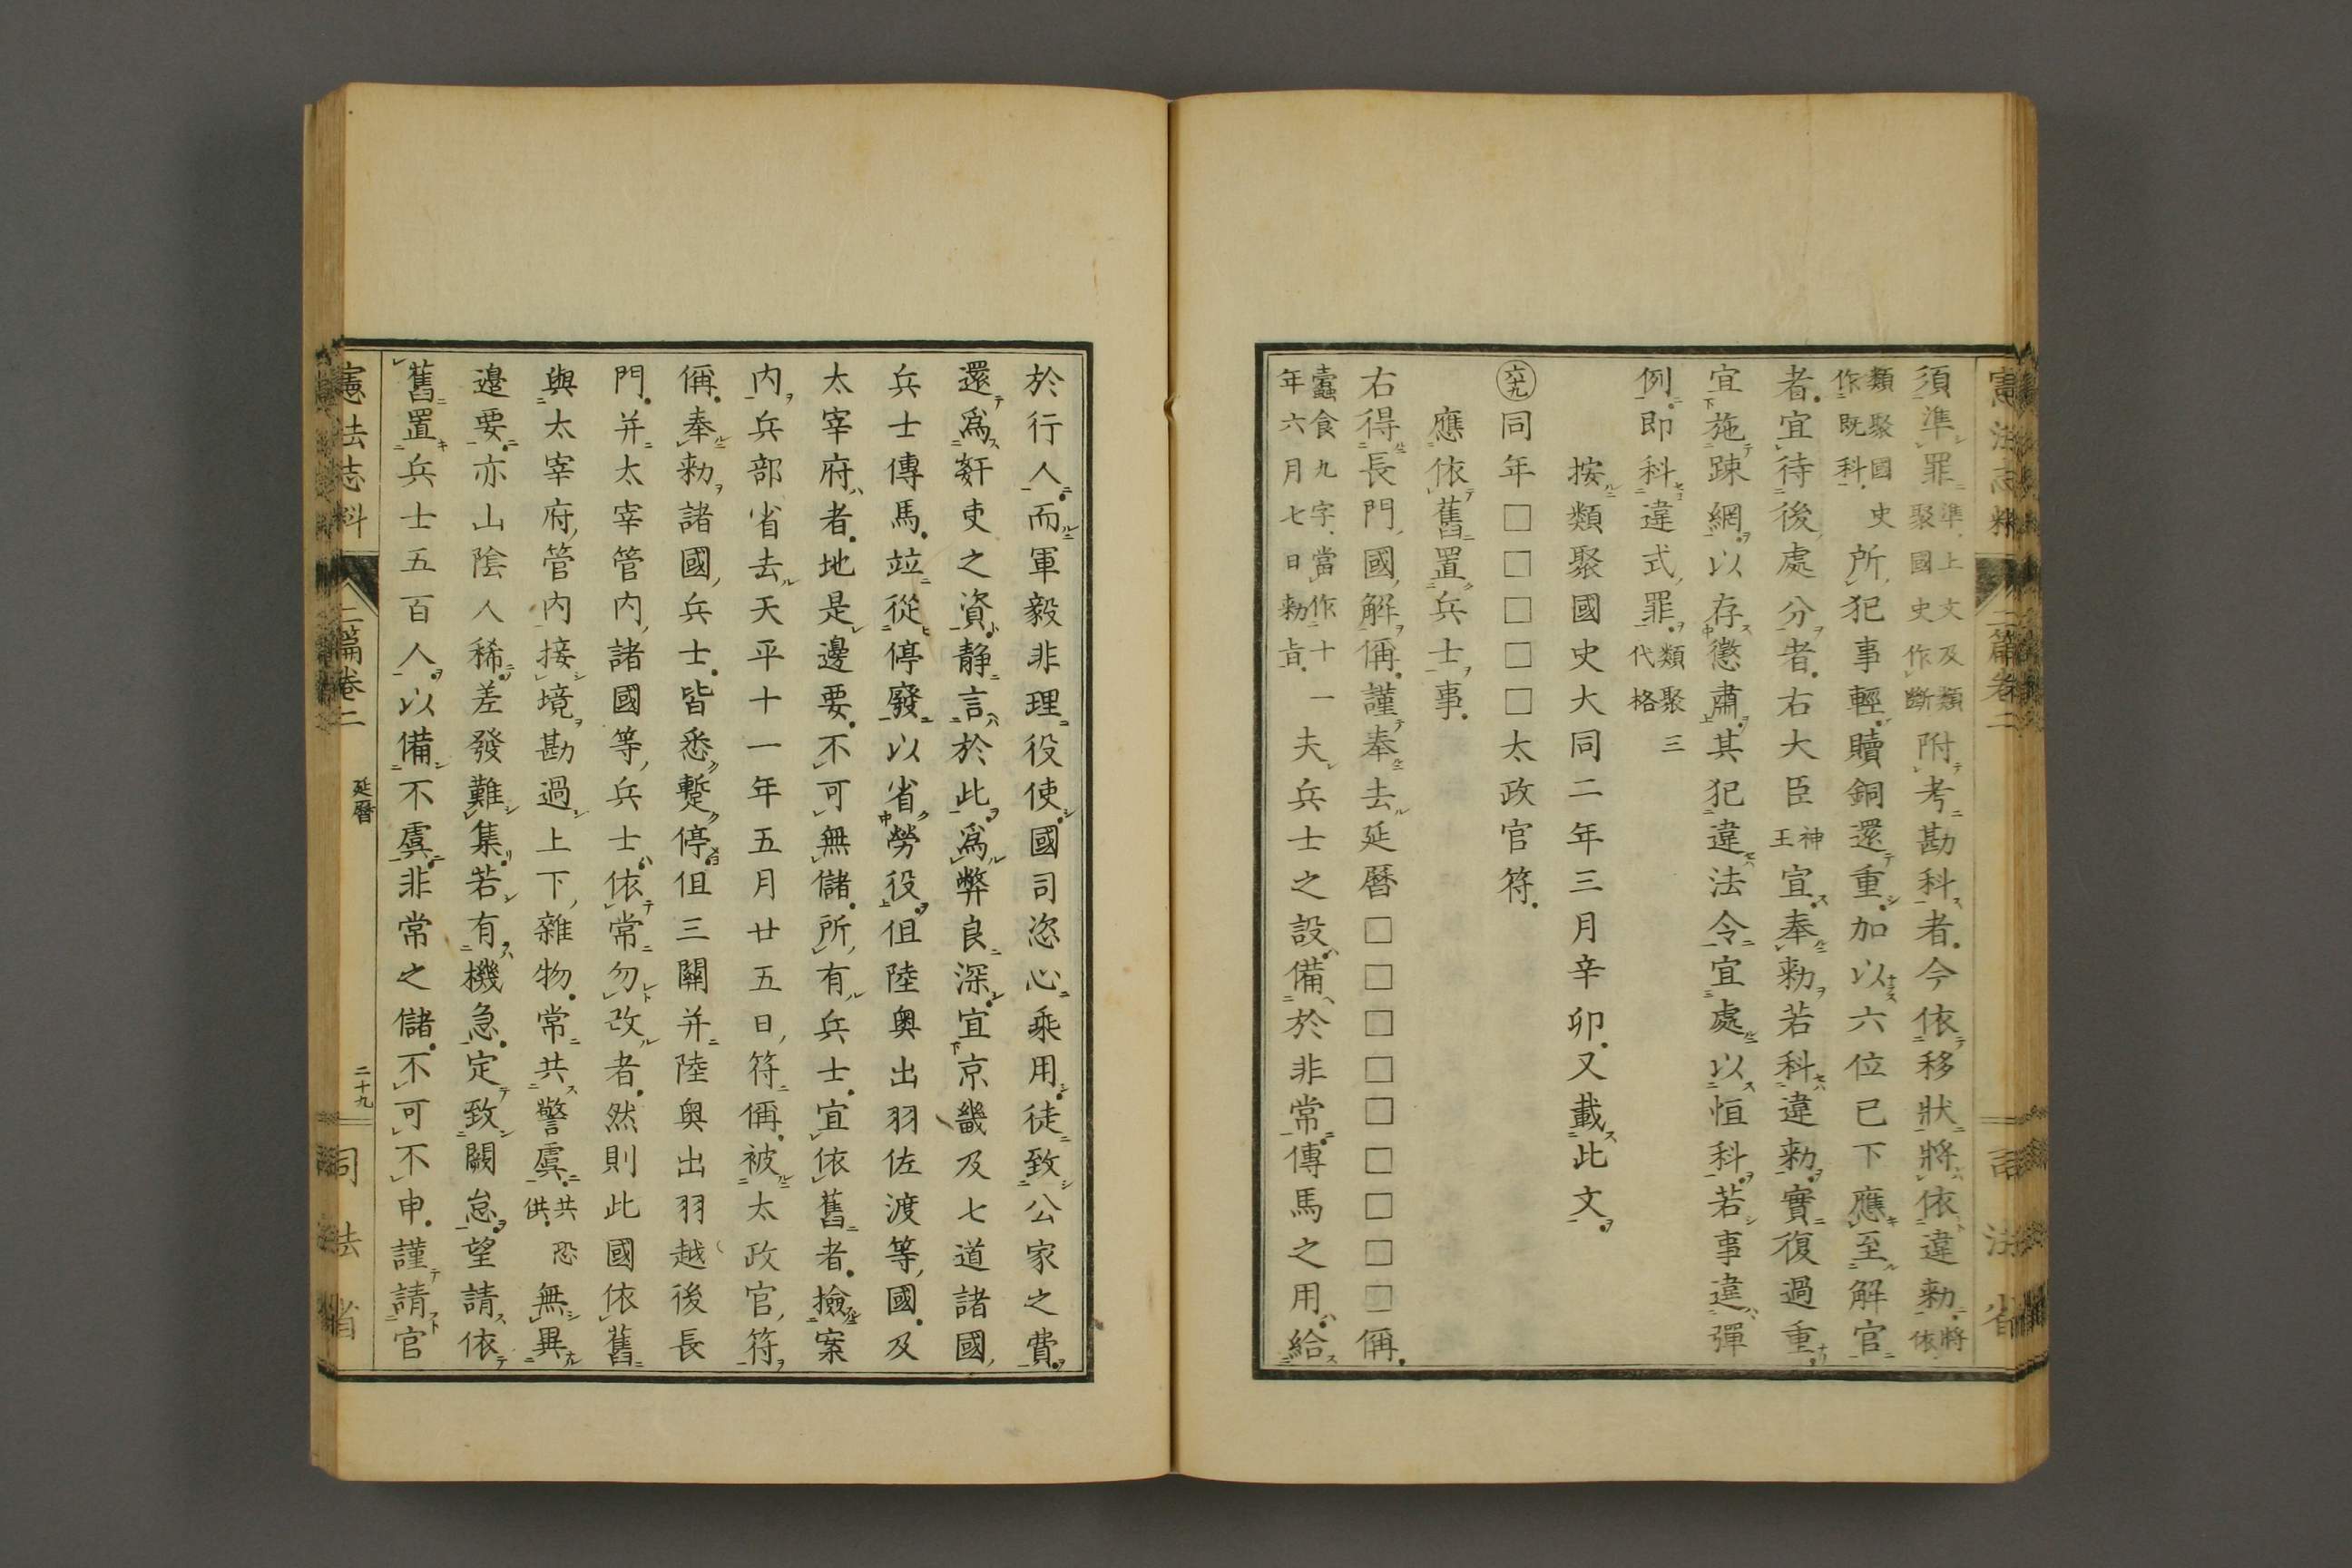 須準罪準、上文及類聚國史作斷附考勘科者。今依移狀將依違勅將依、
類聚國史作既科。所犯事輕。贖銅還重。加以六位已下應至解官
者。宜待後處分者。右大臣神王宣。奉勅若科違勅。實復過重。
宜施踈網。以存懲肅。其犯違法令宜處以恒科。若事違彈
例。即科違式罪。類聚三代格
按類聚國史大同二年三月辛卯。又載此文。
六九同年□□□□□太政官符。
應依舊置兵士事。
右得長門國解偁。謹奉去延曆□□□□□□□□□偁。
蠹食九字、當作十一年六月七日勅旨。夫兵士之設備於非常。傳馬之用給
於行人。而軍毅非理役使。國司恣心乘用。徒致公家之費。
還爲姧吏之資。静言於此。爲弊良深。宜京畿及七道諸國、
兵士傳馬。竝從停廢。以省勞役。但陸奥出羽佐渡等國。及
太宰府者。地是邊要。不可無儲。所有兵士。宜依舊者。撿案
内。兵部省去天平十一年五月廿五日、符偁。被太政官、符
偁。奉勅諸國、兵士。皆悉暫停。但三關并陸奥出羽越後長
門。并太宰管内、諸國等、兵士。依常勿改者。然則此國依舊
與太宰府、管内接境。勘過上下、雜物。常共警虞。共恐供。無異
邉要。亦山陰人稀。差發難集。若有機急。定致闕怠。望請依
舊置兵士五百人。以備不虞。非常之儲。不可不申。謹請官
憲法志料 二篇卷二 延曆 二十九 司法省